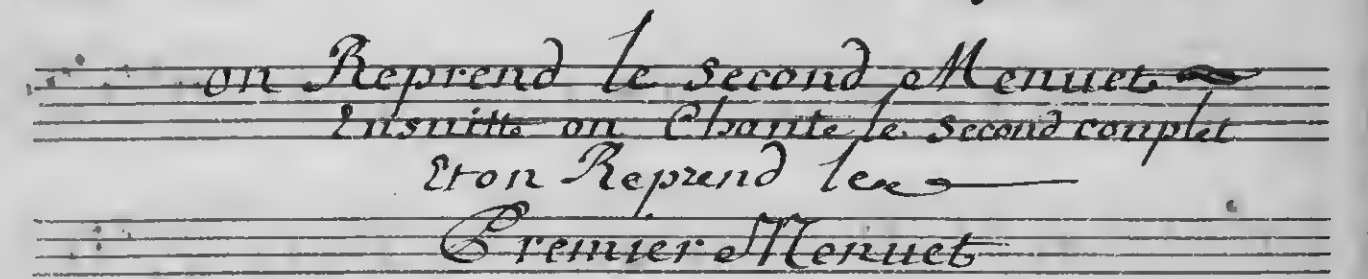 on Reprend le second Menuet
Ensuitte on Chante le second couplet
Et on Reprend le
Premier Menuet